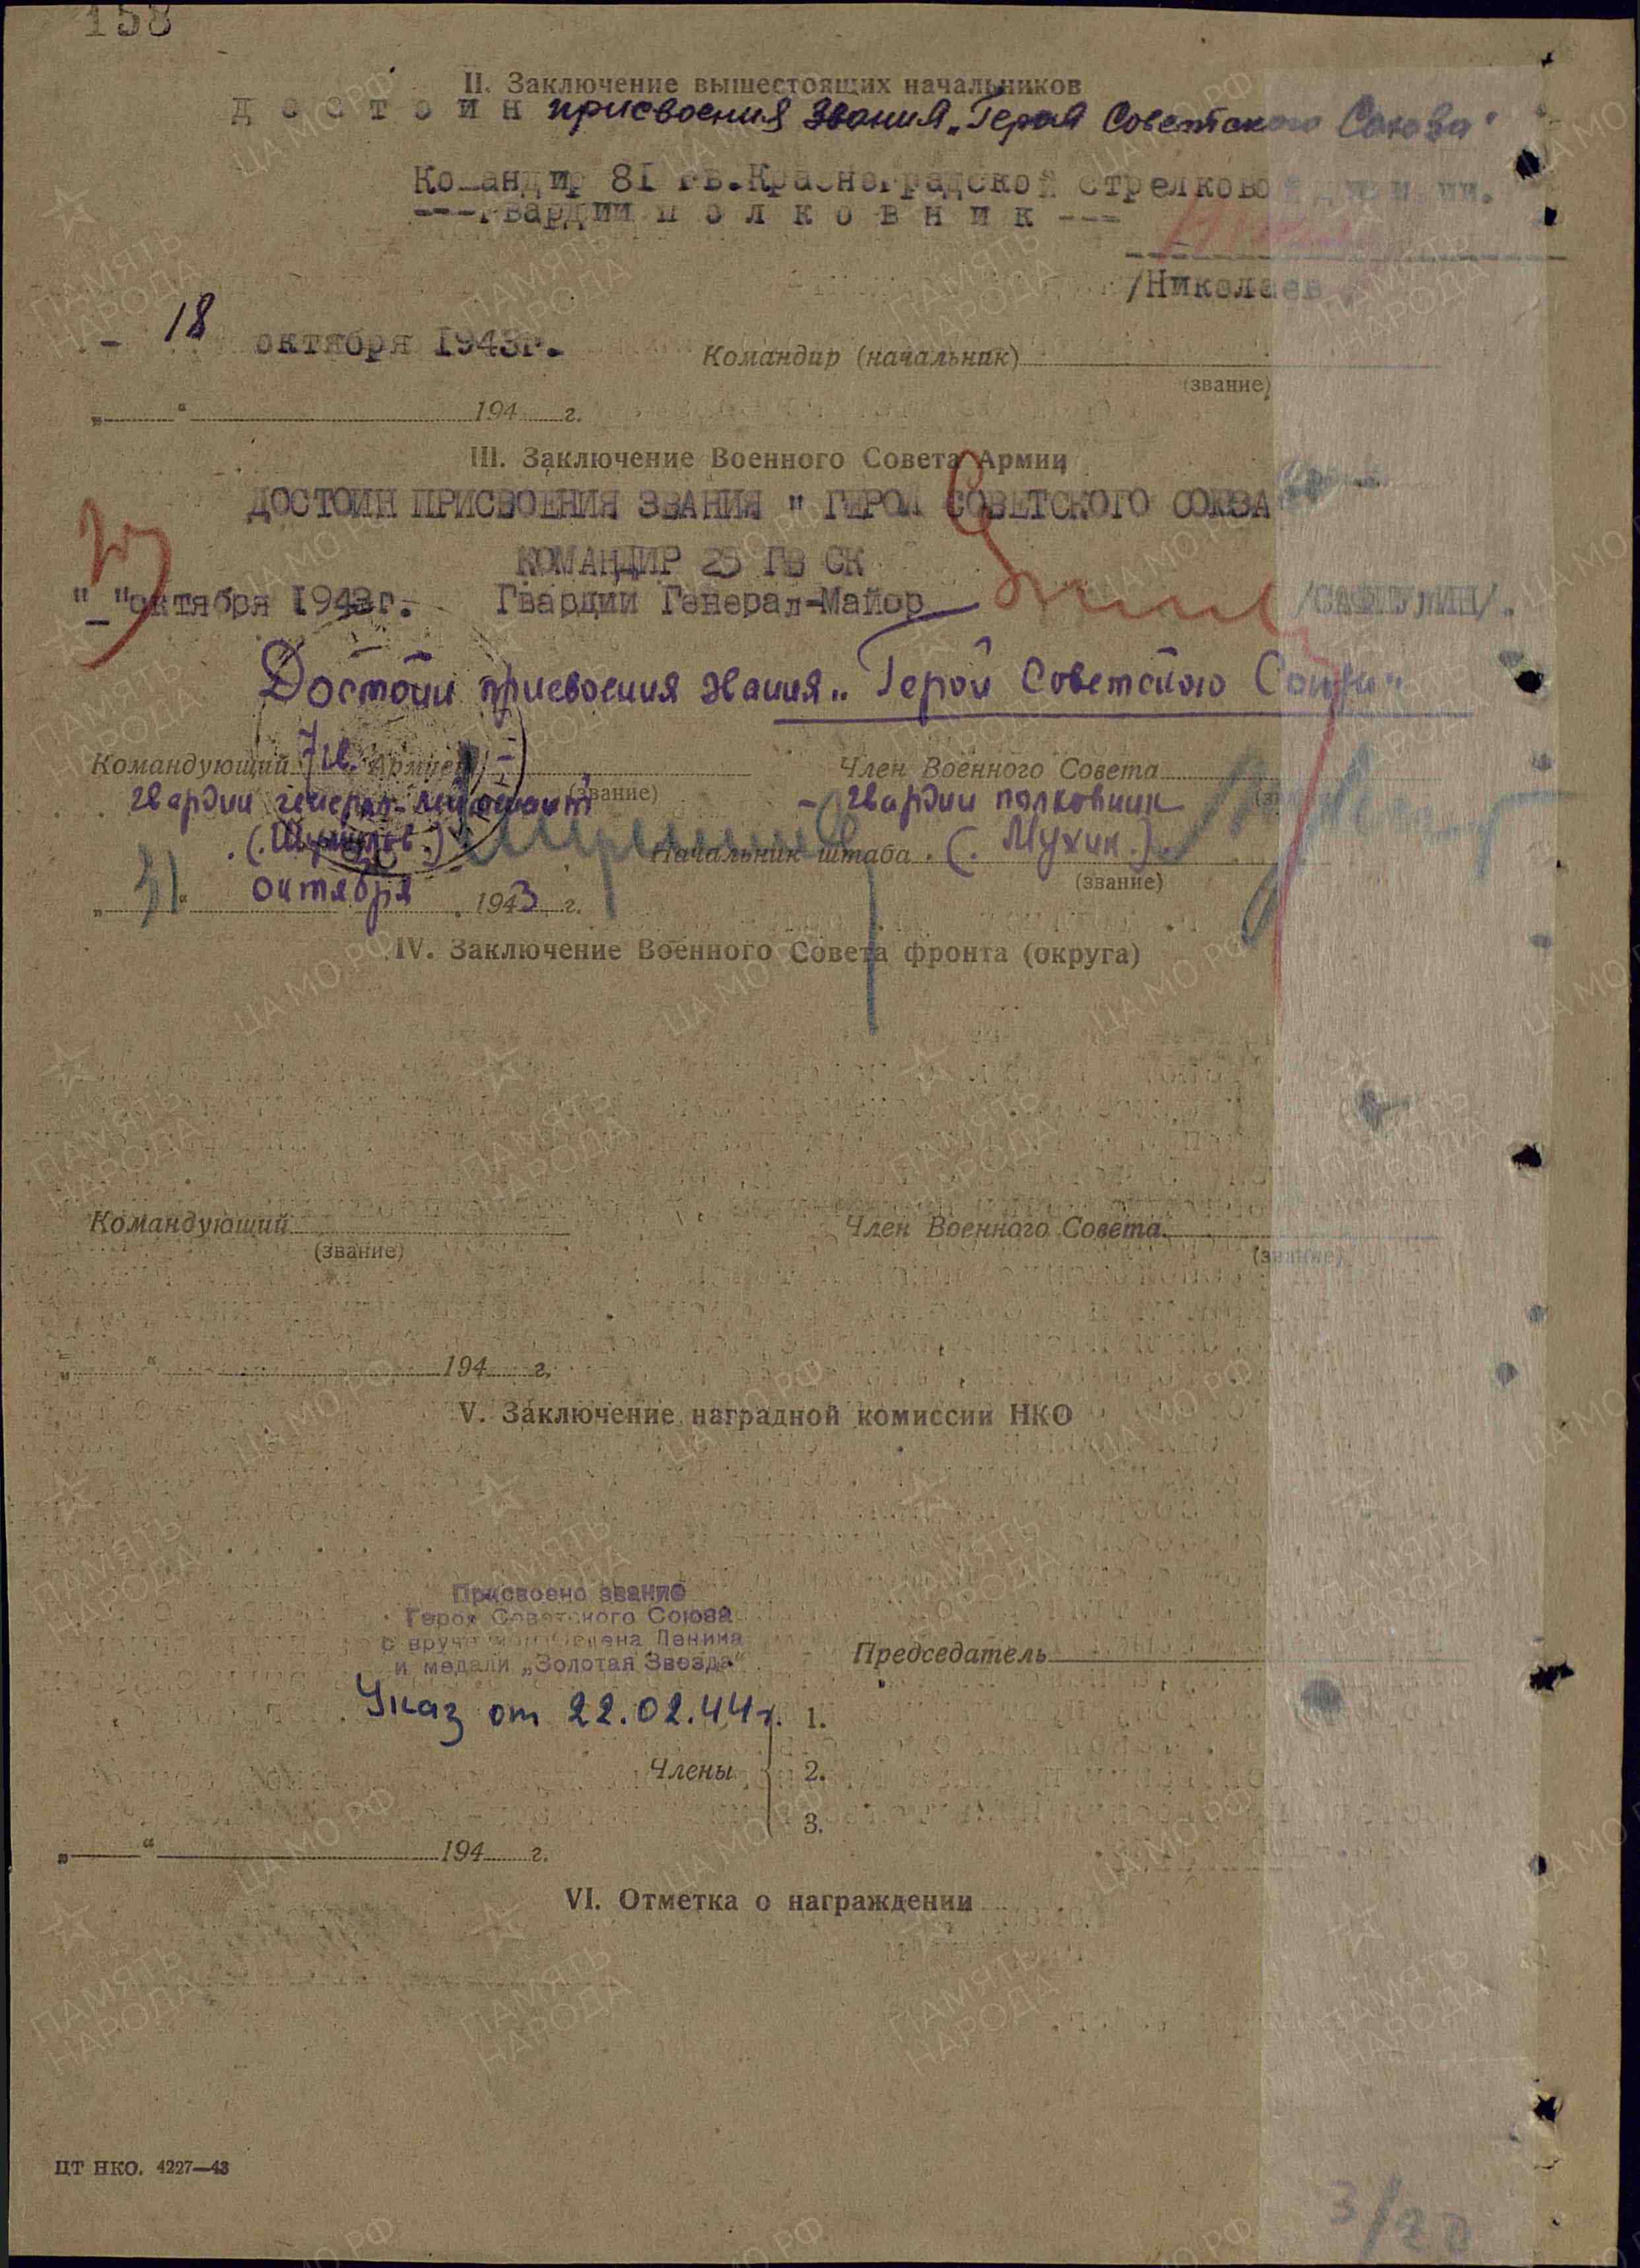 158
II. Заключение вышестоящих начальников
д о с т о и н присвоения звания „Героя Советского Союза"
Командир 81 гв.Красноградской стрелковой дивизии.
---гвардии п о л к о в н и к ---
/Николаев
- 18 октября 1943г.
Командир (начальник)
(звание)
„ “ 194 г.
III. Заключение Военного Совета Армии
ДОСТОИН ПРИСВОЕНИЯ ЗВАНИЯ " ГЕРОЙ СОВЕТСКОГО СОЮЗА
КОМАНДИР 25 ГВ СК
" "октября 1943г. Гвардии Генерал-Майор /САФИУЛИН/.
Достоин присвоения звания „Герой Советского Союза"
Командующий 7 гв. Армией Член Военного Совета
(звание)
гвардии генерал-лейтенант - гвардии полковник
(Шумилов) Начальник штаба (Мухин.)
(звание)
„31“ октября 1943 г.
IV. Заключение Военного Совета фронта (округа)
Командующий Член Военного Совета
(звание) (звание)
„ “ 194 г.
V. Заключение наградной комиссии НКО
Присвоено звание
Героя Советского Союза
с вручением Ордена Ленина
и медали „Золотая Звезда"
Председатель
Указ от 22.02.44г. 1.
Члены 2.
3.
„ “ 194 г.
VI. Отметка о награждении
ЦТ НКО. 4227—43
3/20
ПАМЯТЬ НАРОДА
ЦА МО РФ